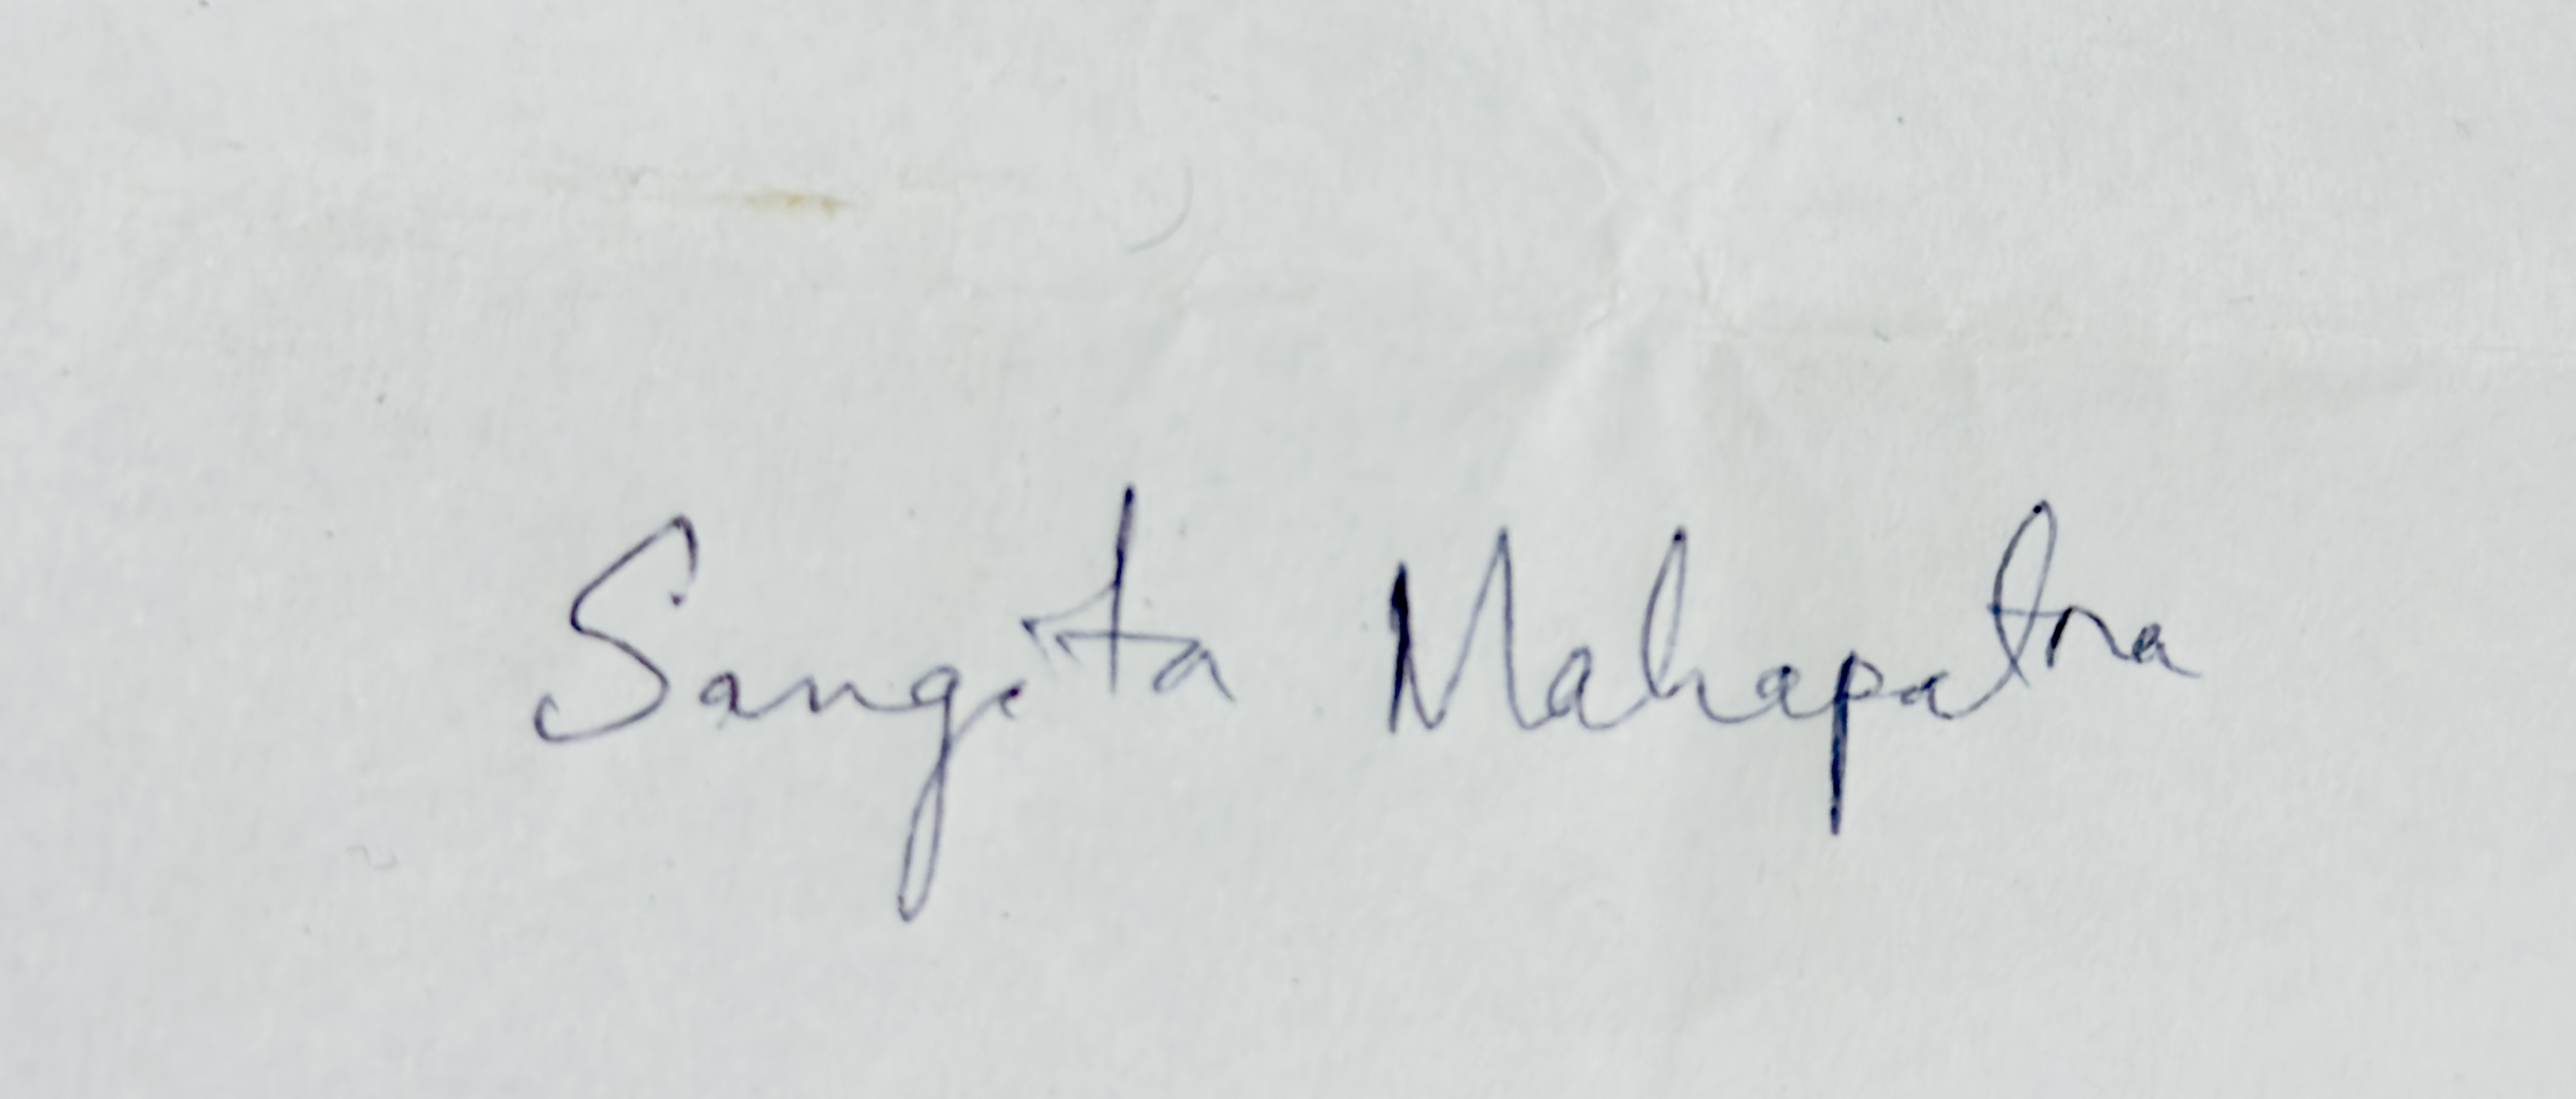 Sangita Mahapatra